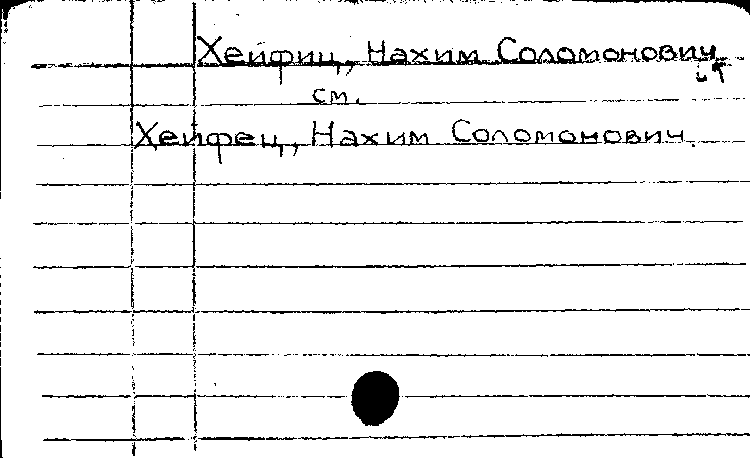 Хейфиц, Нахим Соломонович
см.
Хейфец, Нахим Соломонович.